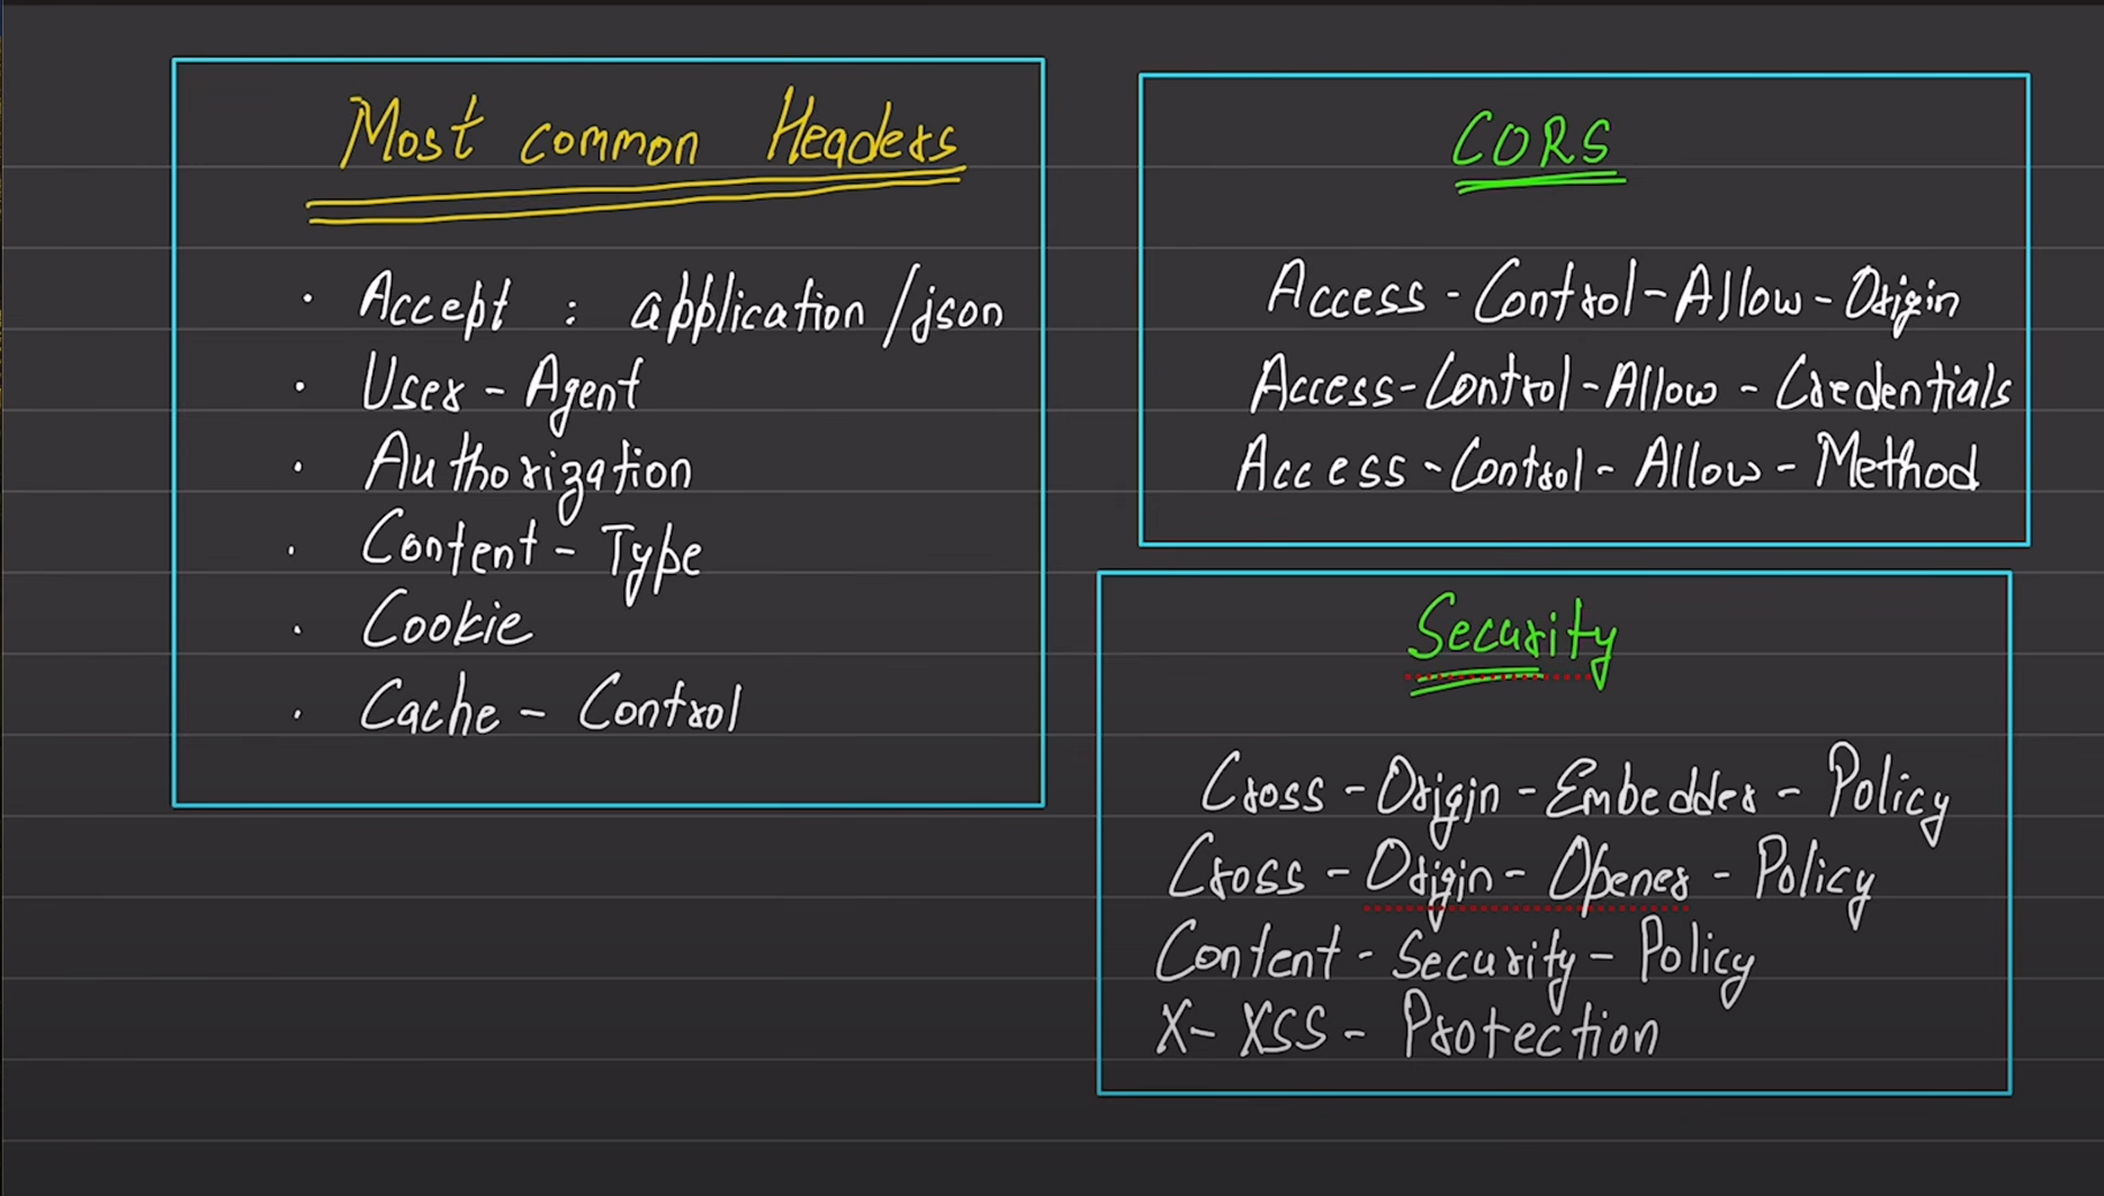 Most common Headers
• Accept : application/json
• User-Agent
• Authorization
• Content-Type
• Cookie
• Cache-Control
CORS
Access-Control-Allow-Origin
Access-Control-Allow-Credentials
Access-Control-Allow-Method
Security
Cross-Origin-Embedder-Policy
Cross-Origin-Opener-Policy
Content-Security-Policy
X-XSS-Protection